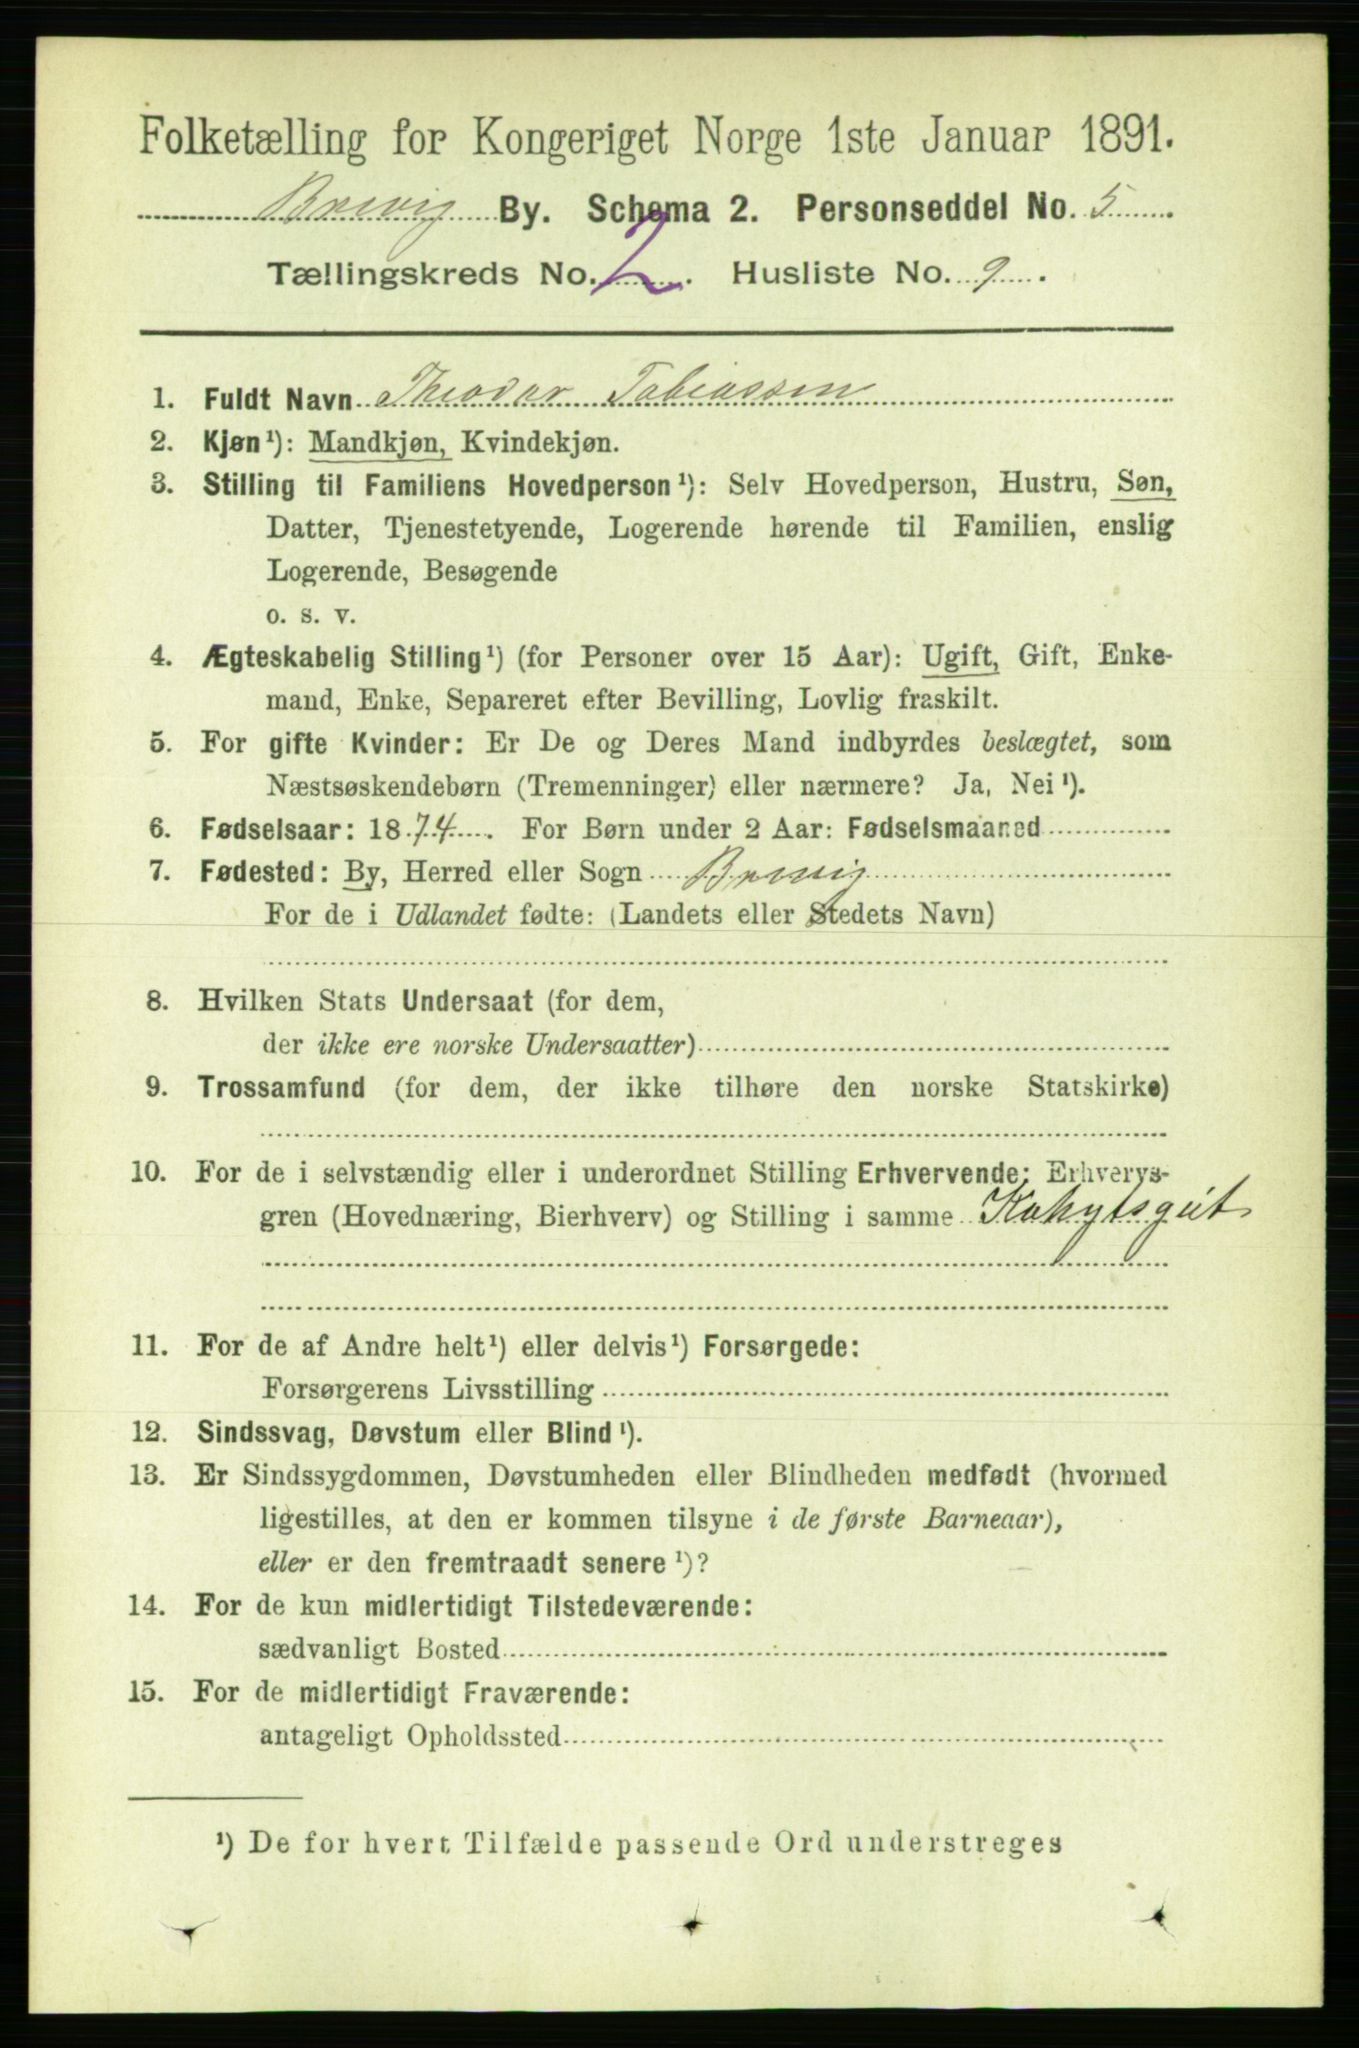 Folketælling for Kongeriget Norge 1ste Januar 1891.
Brevig By. Schema 2. Personseddel No. 5
Tællingskreds No. 2. Husliste No. 9.
1. Fuldt Navn Theodor Tobiassen
2. Kjøn¹): Mandkjøn, Kvindekjøn.
3. Stilling til Familiens Hovedperson¹): Selv Hovedperson, Hustru, Søn,
Datter, Tjenestetyende, Logerende hørende til Familien, enslig
Logerende, Besøgende
o. s. v.
4. Ægteskabelig Stilling¹) (for Personer over 15 Aar): Ugift, Gift, Enke-
mand, Enke, Separeret efter Bevilling, Lovlig fraskilt.
5. For gifte Kvinder: Er De og Deres Mand indbyrdes beslægtet, som
Næstsøskendebørn (Tremenninger) eller nærmere? Ja, Nei¹).
6. Fødselsaar: 1874. For Børn under 2 Aar: Fødselsmaaned
7. Fødested: By, Herred eller Sogn Brevig
For de i Udlandet fødte: (Landets eller Stedets Navn)
8. Hvilken Stats Undersaat (for dem,
der ikke ere norske Undersaatter)
9. Trossamfund (for dem, der ikke tilhøre den norske Statskirke)
10. For de i selvstændig eller i underordnet Stilling Erhvervende: Erhvervs-
gren (Hovednæring, Bierhverv) og Stilling i samme Kahytsgut
11. For de af Andre helt¹) eller delvis¹) Forsørgede:
Forsørgerens Livsstilling
12. Sindssvag, Døvstum eller Blind¹).
13. Er Sindssygdommen, Døvstumheden eller Blindheden medfødt (hvormed
ligestilles, at den er kommen tilsyne i de første Barneaar),
eller er den fremtraadt senere¹)?
14. For de kun midlertidigt Tilstedeværende:
sædvanligt Bosted
15. For de midlertidigt Fraværende:
antageligt Opholdssted
¹) De for hvert Tilfælde passende Ord understreges